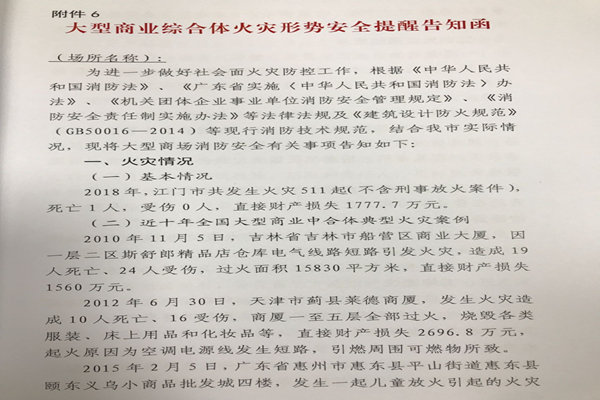 附件6
大型商业综合体火灾形势安全提醒告知函
（场所名称）：
为进一步做好社会面火灾防控工作，根据《中华人民共
和国消防法》、《广东省实施〈中华人民共和国消防法〉办
法》、《机关团体企业事业单位消防安全管理规定》、《消
防安全责任制实施办法》等法律法规及《建筑设计防火规范》
（GB50016—2014）等现行消防技术规范，结合我市实际情
况，现将大型商场消防安全有关事项告知如下：
一、火灾情况
（一）基本情况
2018年，江门市共发生火灾511起(不含刑事放火案件)，
死亡1人，受伤0人，直接财产损失1777.7万元。
（二）近十年全国大型商业中合体典型火灾案例
2010年11月5日，吉林省吉林市船营区商业大厦，因
一层二区斯舒郎精品店仓库电气线路短路引发火灾，造成19
人死亡、24人受伤，过火面积15830平方米，直接财产损失
1560万元。
2012年6月30日，天津市蓟县莱德商厦，发生火灾造
成10人死亡、16受伤，商厦一至五层全部过火，烧毁各类
服装、床上用品和化妆品等，直接财产损失2696.8万元，
起火原因为空调电源线发生短路，引燃周围可燃物所致。
2015年2月5日，广东省惠州市惠东县平山街道惠东县
颐东义乌小商品批发城四楼，发生一起儿童放火引起的火灾